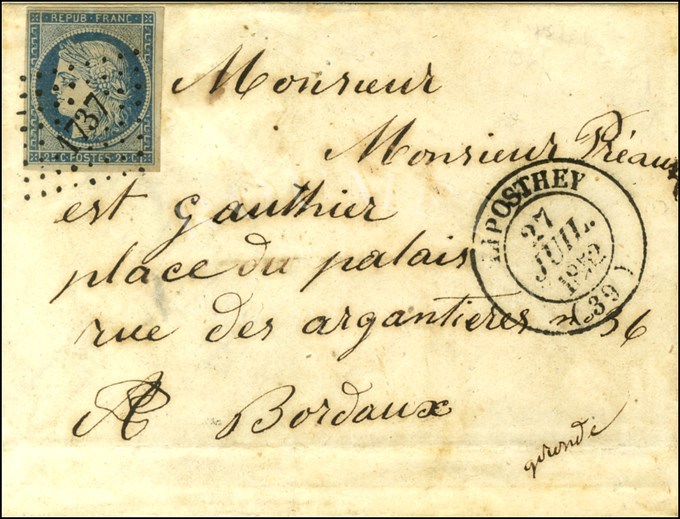 REPUB · FRANC ·
1737
25 c · POSTES · 25 c
Monsieur
Monsieur Préau
LIPOSTHEY
27
JUIL.
1852
(39)
est Gauthier
place du palais
rue des argantieres no 36
A Bordaux
gironde